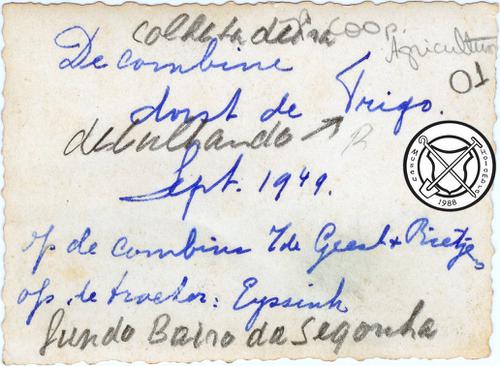 colhetadeira
COOP.
Agricultura
01
De combine
dorst de Trigo.
debulhando
Sept. 1949.
op de combine J de Geest + Pietje
op de tractor: Eyssink
fundo Bairo da Segonha
MUSEU
1988